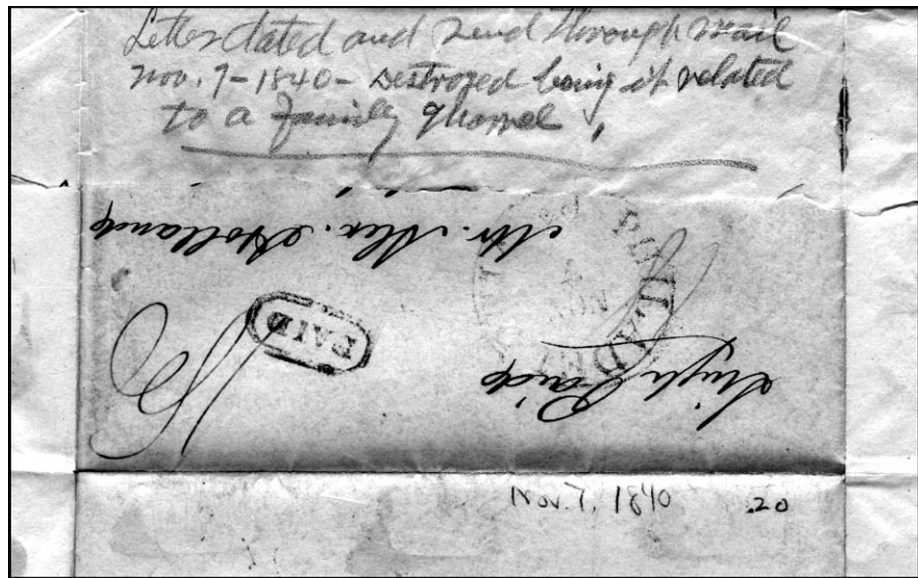 Letter dated and send through mail
Nov. 7-1840- Destroyed being it related
to a family quarrel,
Mr. Alex. Holland
PAID
NOV
7
Single Paid
Nov. 7, 1840 .20